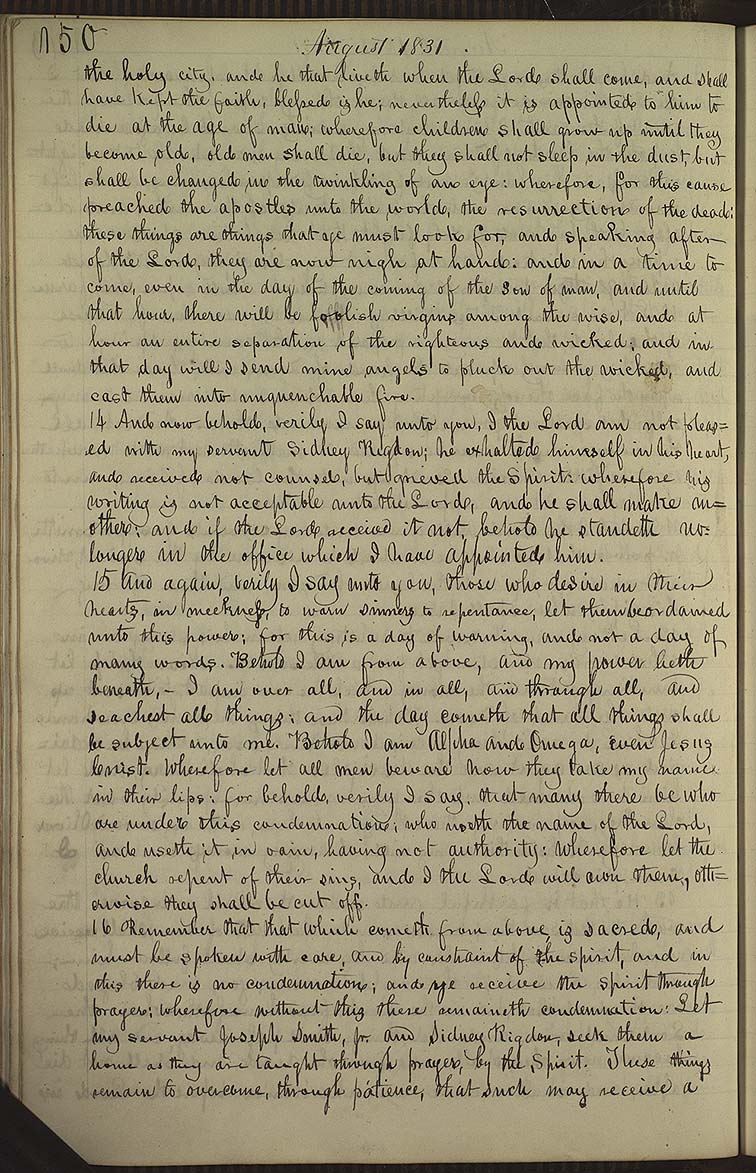 150
August 1831.
the holy city. and he that liveth when the Lord shall come, and shall
have kept the faith, blessed is he; nevertheless it is appointed to him to
die at the age of man; wherefore children shall grow up until they
become old, old men shall die, but they shall not sleep in the dust, but
shall be changed in the twinkling of an eye: wherefore, for this cause
preached the apostles unto the world, the resurrection of the dead:
these things are things that ye must look for, and speaking after
of the Lord, they are now nigh at hand: and in a time to
come, even in the day of the coming of the Son of man, and until
that hour, there will be foolish virgins among the wise, and at
hour an entire separation of the righteous and wicked; and in
that day will I send mine angels to pluck out the wicked, and
cast them into unquenchable fire.
14 And now behold, verily I say unto you, I the Lord am not pleas=
ed with my servant Sidney Rigdon; he exhalted himself in his heart,
and received not counsel, but grieved the Spirit: wherefore his
writing is not acceptable unto the Lord, and he shall make an=
other; and if the Lord receive it not, behold he standeth no=
longer in the office which I have appointed him.
15 And again, verily I say unto you, those who desire in their
hearts, in meekness, to warn sinners to repentance, let them be ordained
unto this power; for this is a day of warning, and not a day of
many words. Behold I am from above, and my power lieth
beneath,- I am over all, and in all, and through all, and
seachest all things: and the day cometh that all things shall
be subject unto me. Behold I am Alpha and Omega, even Jesus
Christ. Wherefore let all men beware how they take my name
in their lips: for behold, verily I say, that many there be who
are under this condemnation; who useth the name of the Lord,
and useth it in vain, having not authority: Wherefore let the
church repent of their sins, and I the Lord will own them, oth=
erwise they shall be cut off.
16 Remember that that which cometh from above is sacred, and
must be spoken with care, and by constraint of the spirit, and in
this there is no condemnation; and ye receive the spirit through
prayer; wherefore without this there remaineth condemnation: Let
my servant Joseph Smith, Jr. and Sidney Rigdon, seek them a
home as they are taught through prayer, by the Spirit. These things
remain to overcome, through patience, that such may receive a